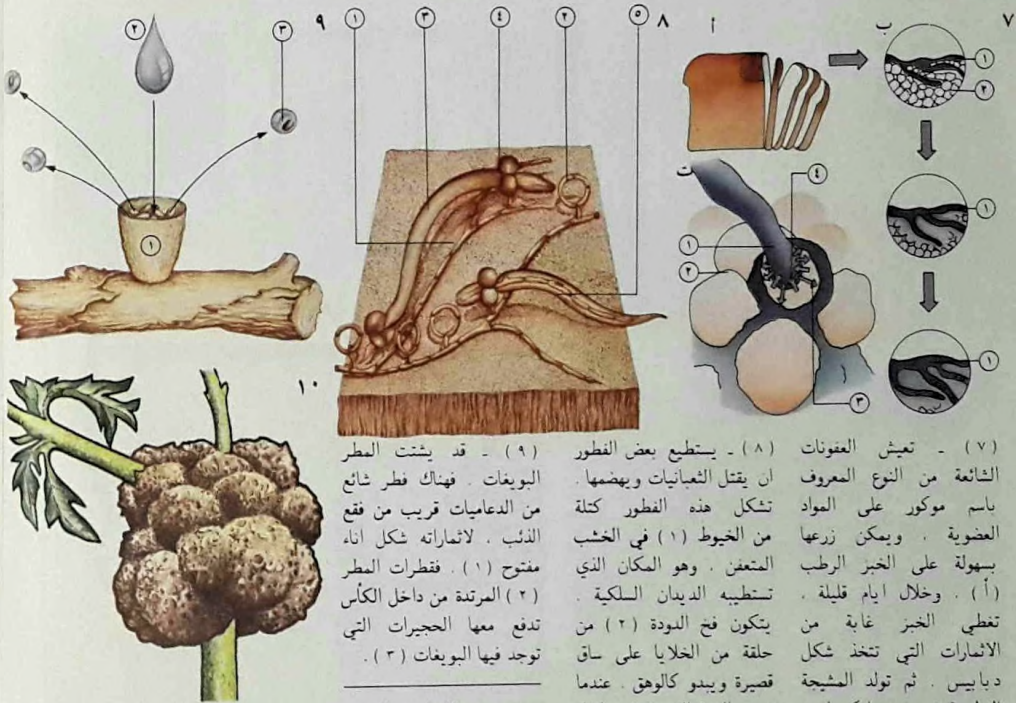 ٧
أ
ب
١
٢
١
١
ت
٤
١
٢
٣
٨
١
٣
٤
٢
٥
٩
٢
٣
١
١٠
(٧) ـ تعيش العفونات
الشائعة من النوع المعروف
باسم موكور على المواد
العضوية . ويمكن زرعها
بسهولة على الخبز الرطب
(أ) . وخلال ايام قليلة ،
تغطي الخبز غابة من
الاثمارات التي تتخذ شكل
دبابيس . ثم تولد المشيجة
(٨) ـ يستطيع بعض الفطور
ان يقتل الثعبانيات ويهضمها .
تشكل هذه الفطور كتلة
من الخيوط (١) في الخشب
المتعفن . وهو المكان الذي
تستطيبه الديدان السلكية .
يتكون فخ الدودة (٢) من
حلقة من الخلايا على ساق
قصيرة ويبدو كالوهق . عندما
(٩) ـ قد يشتت المطر
البويغات . فهناك فطر شائع
من الدعاميات قريب من فقع
الذئب . لاثماراته شكل اناء
مفتوح (١) . فقطرات المطر
(٢) المرتدة من داخل الكأس
تدفع معها الحجيرات التي
توجد فيها البويغات (٣) .